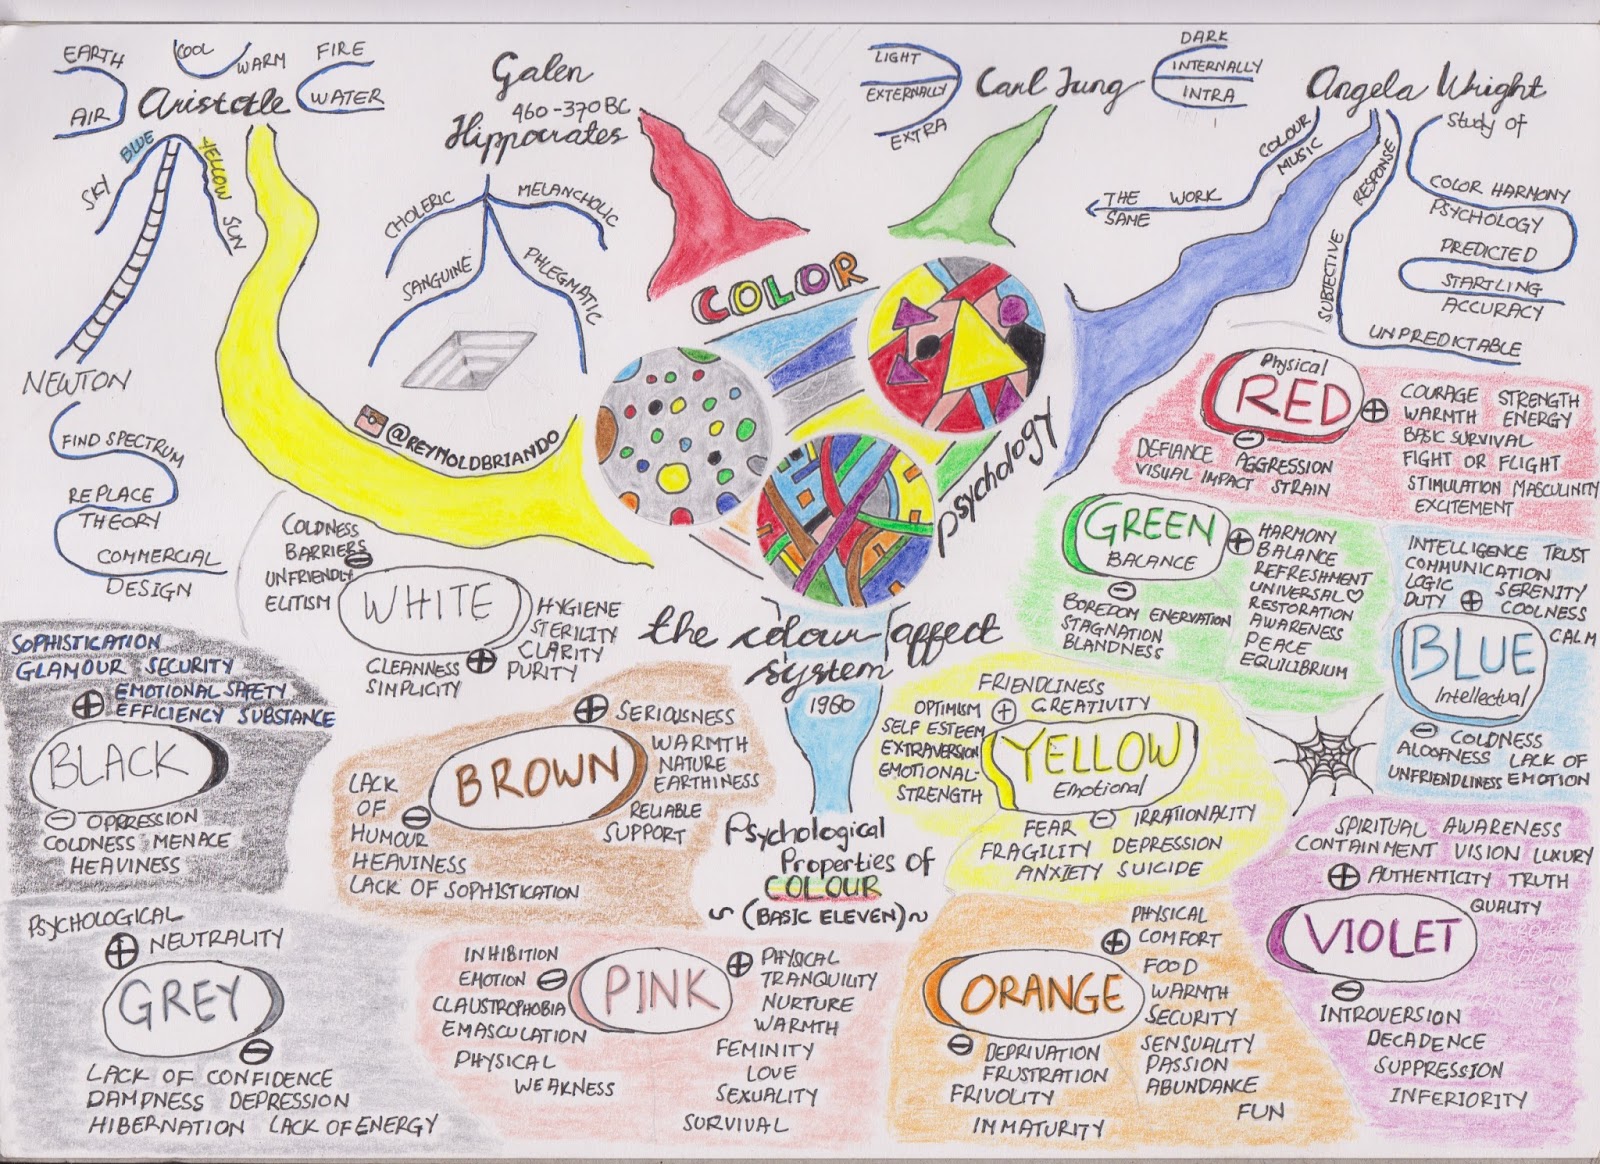 EARTH
AIR
COOL
WARM
FIRE
WATER
Aristotle
BLUE
SKY
YELLOW
SUN
NEWTON
FIND SPECTRUM
REPLACE
THEORY
COMMERCIAL
DESIGN
Galen
460-370BC
Hippocrates
CHOLERIC
MELANCHOLIC
SANGUINE
PHLEGMATIC
@REYNOLDBRIANDO
LIGHT
EXTERNALLY
EXTRA
Carl Jung
DARK
INTERNALLY
INTRA
Angela Wright
Study of
COLOUR
MUSIC
THE WORK
SAME
RESPONSE
SUBJECTIVE
UNPREDICTABLE
COLOR HARMONY
PSYCHOLOGY
PREDICTED
STARTLING
ACCURACY
COLOR
Psychology
the colour affect
system
1980
Psychological
Properties of
COLOUR
(BASIC ELEVEN)
Physical
RED
COURAGE STRENGTH
WARMTH ENERGY
BASIC SURVIVAL
FIGHT OR FLIGHT
STIMULATION MASCULINITY
EXCITEMENT
DEFIANCE AGGRESSION
VISUAL IMPACT STRAIN
GREEN
BALANCE
HARMONY
BALANCE
REFRESHMENT
UNIVERSAL♡
RESTORATION
AWARENESS
PEACE
EQUILIBRIUM
BOREDOM ENERVATION
STAGNATION
BLANDNESS
INTELLIGENCE TRUST
COMMUNICATION
LOGIC SERENITY
DUTY COOLNESS
CALM
BLUE
Intellectual
COLDNESS
ALOOFNESS LACK OF
UNFRIENDLINESS EMOTION
COLDNESS
BARRIERS
UNFRIENDLY
ELITISM
WHITE
HYGIENE
STERILITY
CLARITY
CLEANNESS PURITY
SIMPLICITY
SOPHISTICATION
GLAMOUR SECURITY
EMOTIONAL SAFETY
EFFICIENCY SUBSTANCE
BLACK
OPPRESSION
COLDNESS MENACE
HEAVINESS
SERIOUSNESS
WARMTH
NATURE
EARTHINESS
RELIABLE
SUPPORT
BROWN
LACK
OF
HUMOUR
HEAVINESS
LACK OF SOPHISTICATION
FRIENDLINESS
OPTIMISM CREATIVITY
SELF ESTEEM
EXTRAVERSION
EMOTIONAL-
STRENGTH
YELLOW
Emotional
FEAR IRRATIONALITY
FRAGILITY DEPRESSION
ANXIETY SUICIDE
SPIRITUAL AWARENESS
CONTAINMENT VISION LUXURY
AUTHENTICITY TRUTH
QUALITY
VIOLET
INTROVERSION
DECADENCE
SUPPRESSION
INFERIORITY
PSYCHOLOGICAL
NEUTRALITY
GREY
LACK OF CONFIDENCE
DAMPNESS DEPRESSION
HIBERNATION LACK OF ENERGY
INHIBITION
EMOTION
CLAUSTROPHOBIA
EMASCULATION
PHYSICAL
WEAKNESS
PINK
PHYSICAL
TRANQUILITY
NURTURE
WARMTH
FEMINITY
LOVE
SEXUALITY
SURVIVAL
ORANGE
PHYSICAL
COMFORT
FOOD
WARMTH
SECURITY
SENSUALITY
PASSION
ABUNDANCE
FUN
DEPRIVATION
FRUSTRATION
FRIVOLITY
IMMATURITY